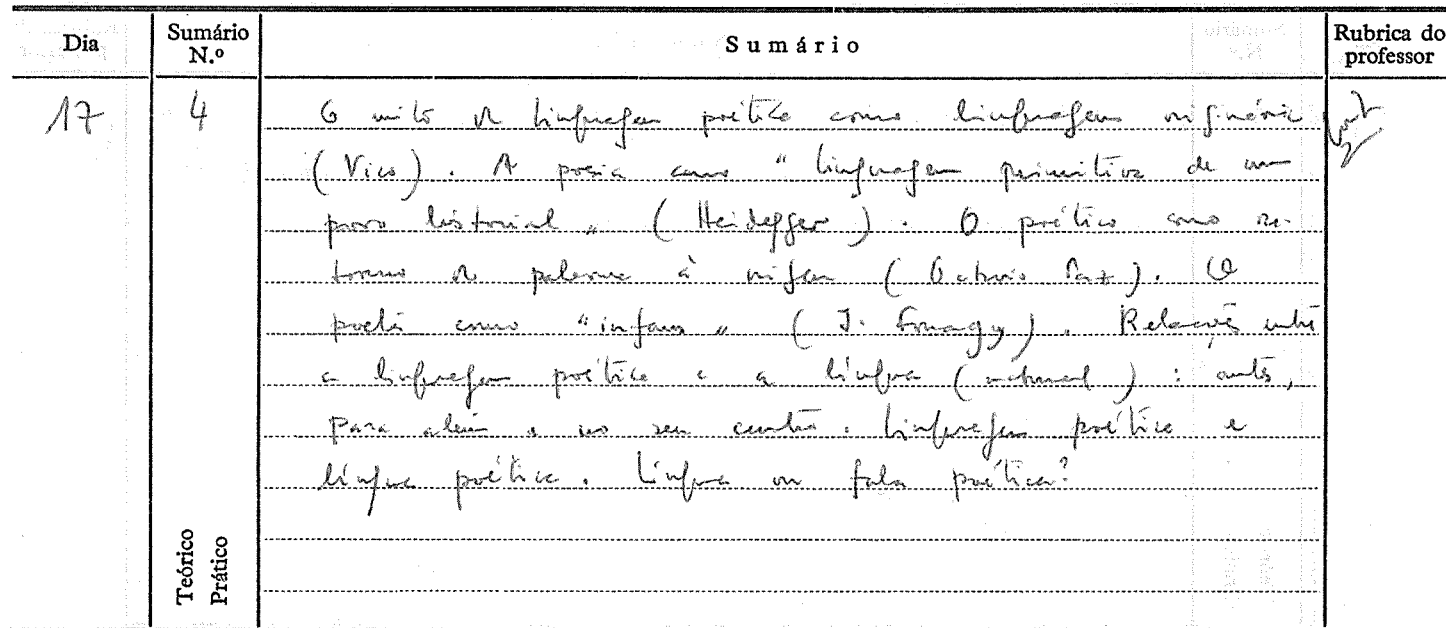 Dia
Sumário N.º
Sumário
Rubrica do professor
17
4
O mito da linguagem poética como linguagem originária
(Vico). A poesia como "linguagem primitiva de um
povo historial" (Heidegger). O poético como re-
torno da palavra à origem (Octavio Paz). O
poeta como "infans" (I. Fonagy). Relações entre
a linguagem poética e a língua (natural): antes,
para além e no seu centro. Linguagem poética e
língua poética. Língua ou fala poética?
Teórico
Prático